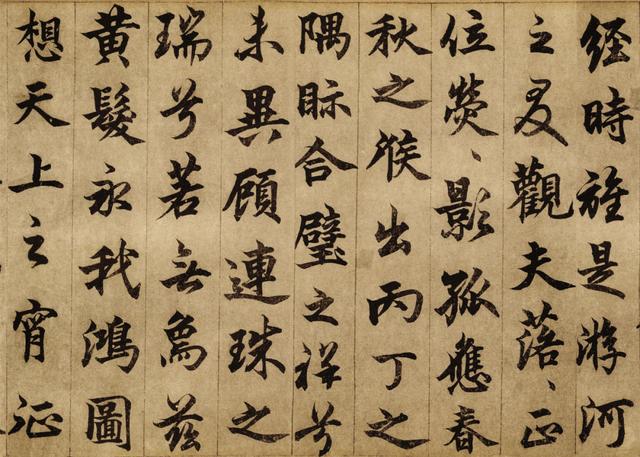 經時於是游河
之叟觀夫落、正
位熒、影孤應春
秋之候出丙丁之
隅眎合璧之祥兮
未異顧連珠之
瑞兮若無為茲
黃髮永我鴻圖
想天上之宵征